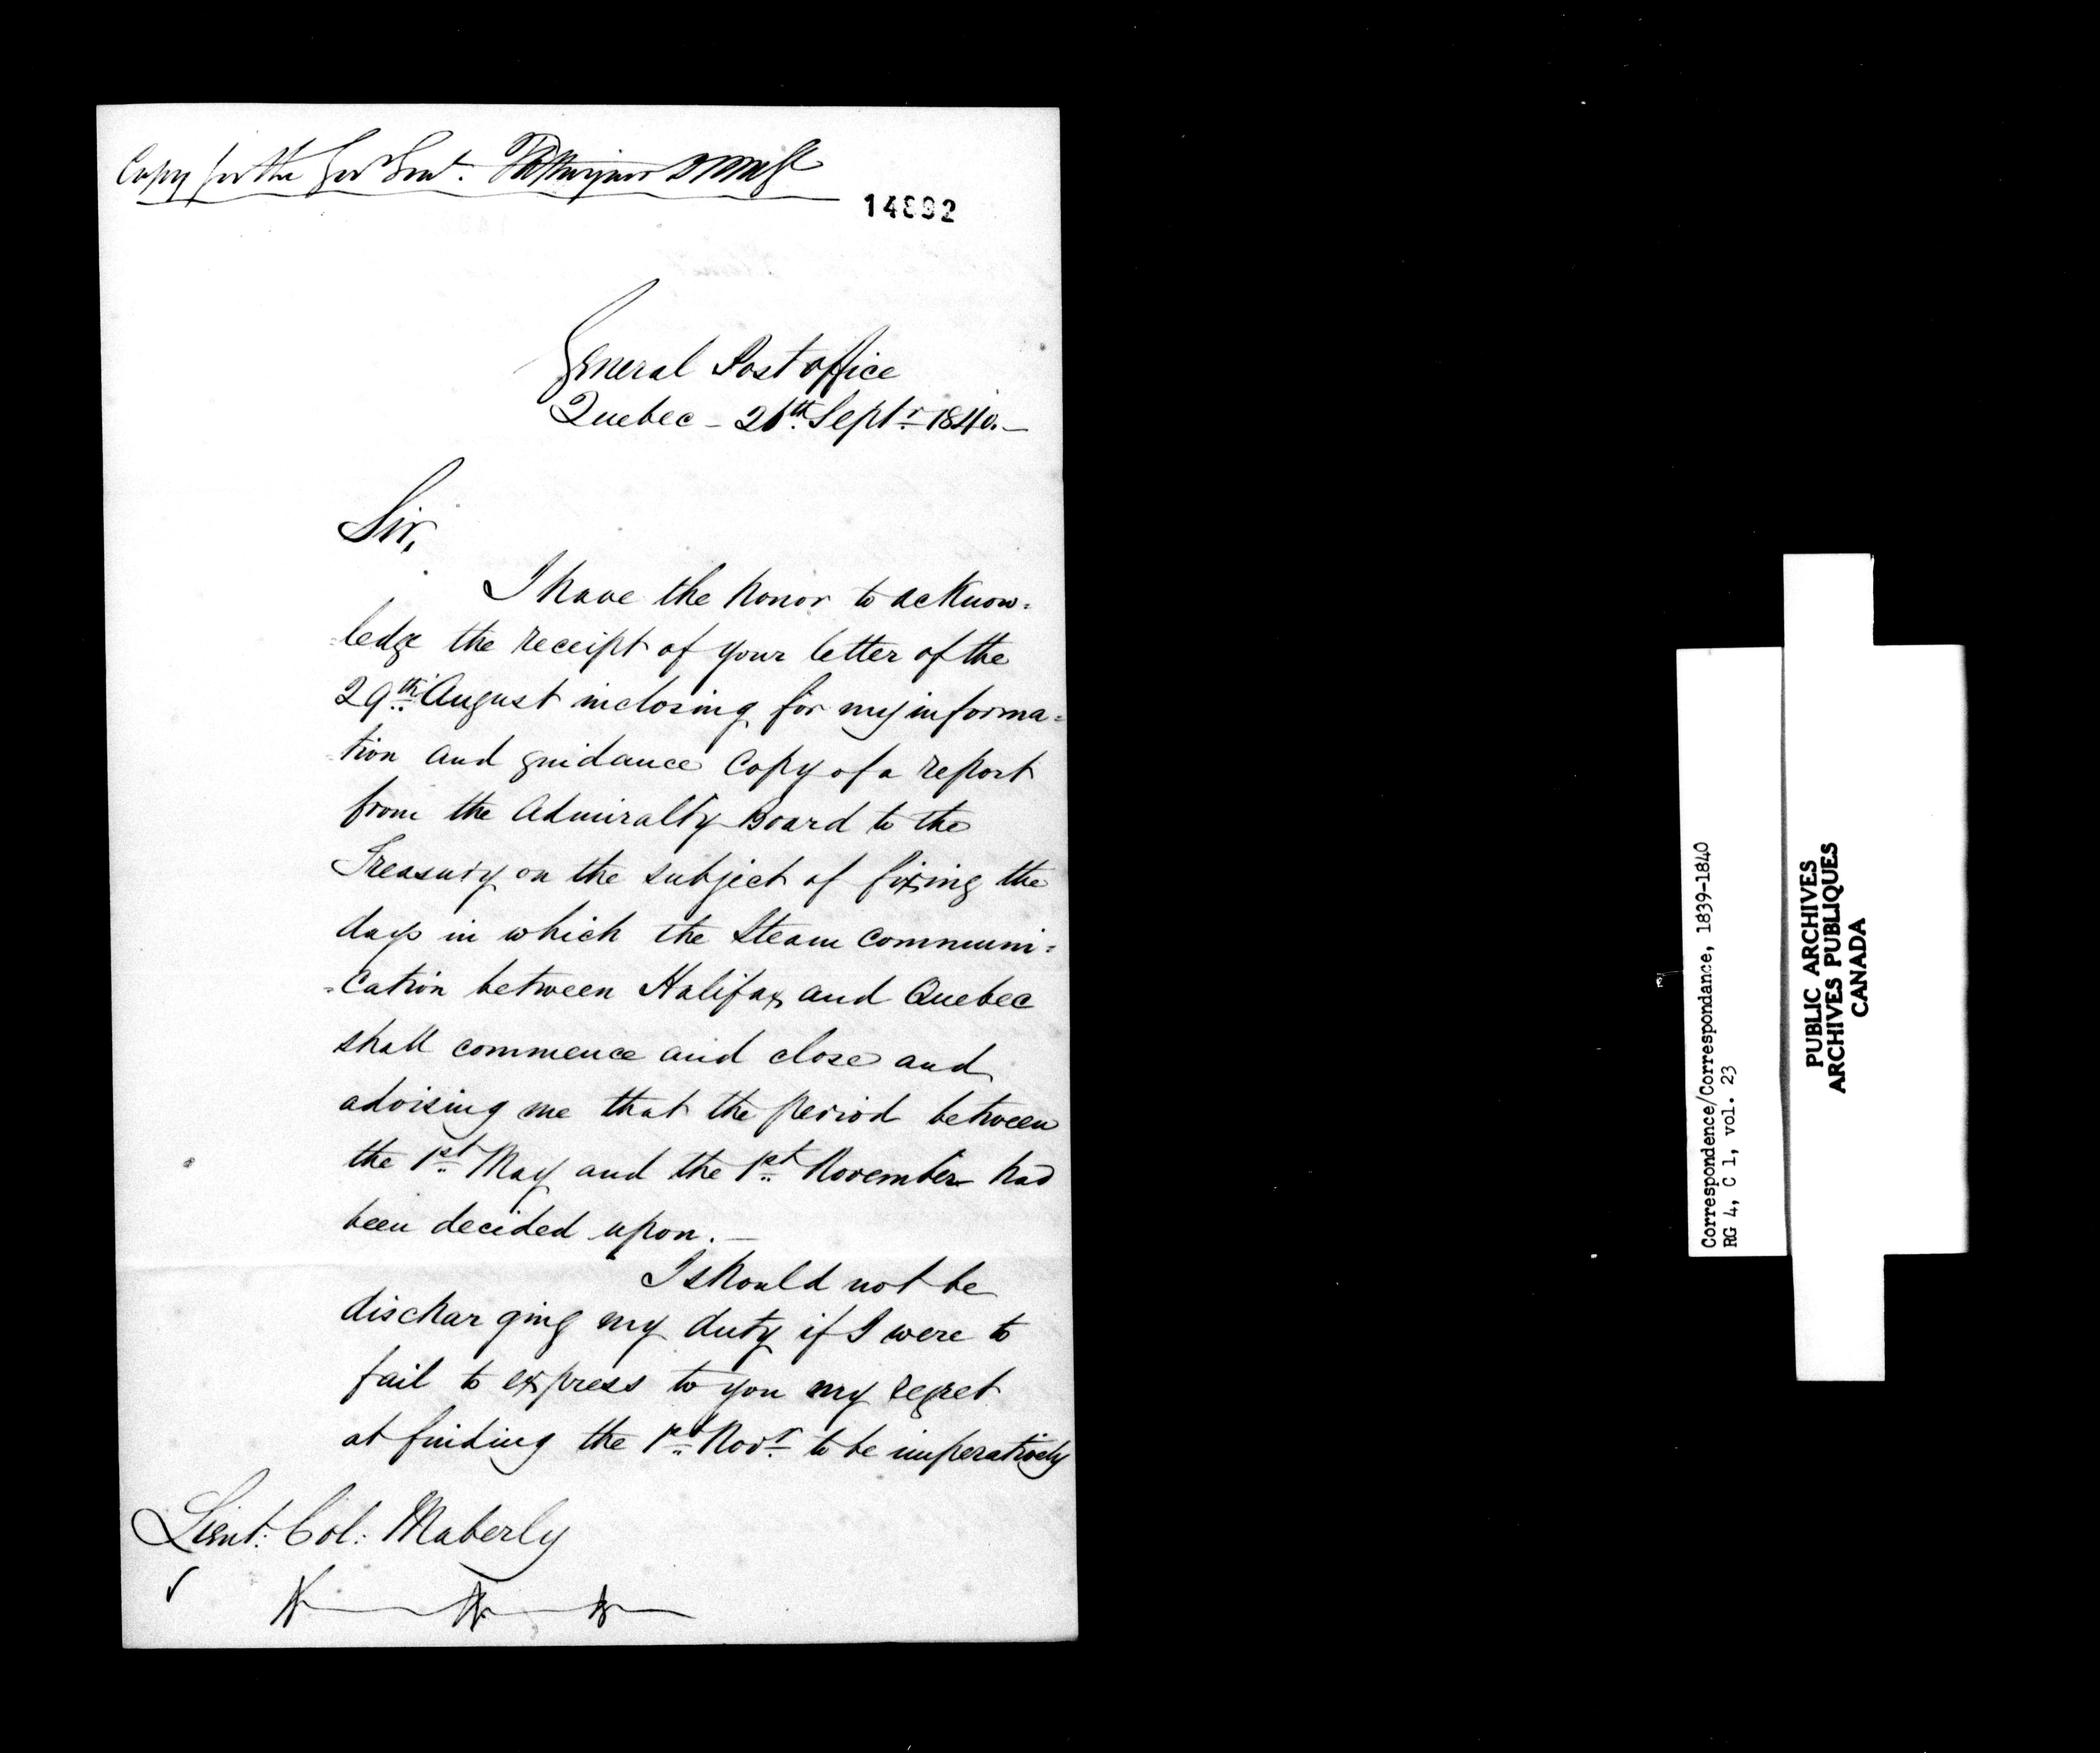 Copy for the Gov Genl.
14892
General Post office
Quebec - 26th Septr 1840.-
Sir,
I have the honor to acknow=
ledge the receipt of your letter of the
29th August inclosing for my informa=
tion and guidance Copy of a report
from the Admiralty Board to the
Treasury on the subject of fixing the
days in which the Steam Communi=
=cation between Halifax and Quebec
shall commence and close and
advising me that the period between
the 1st May and the 1st November had
been decided upon. -
I should not be
discharging my duty if I were to
fail to express to you my regret
at finding the 1st Novr to be imperatively
Lieut. Col: Maberly
Correspondence/Correspondance, 1839-1840
RG 4, C 1, vol. 23
PUBLIC ARCHIVES
ARCHIVES PUBLIQUES
CANADA